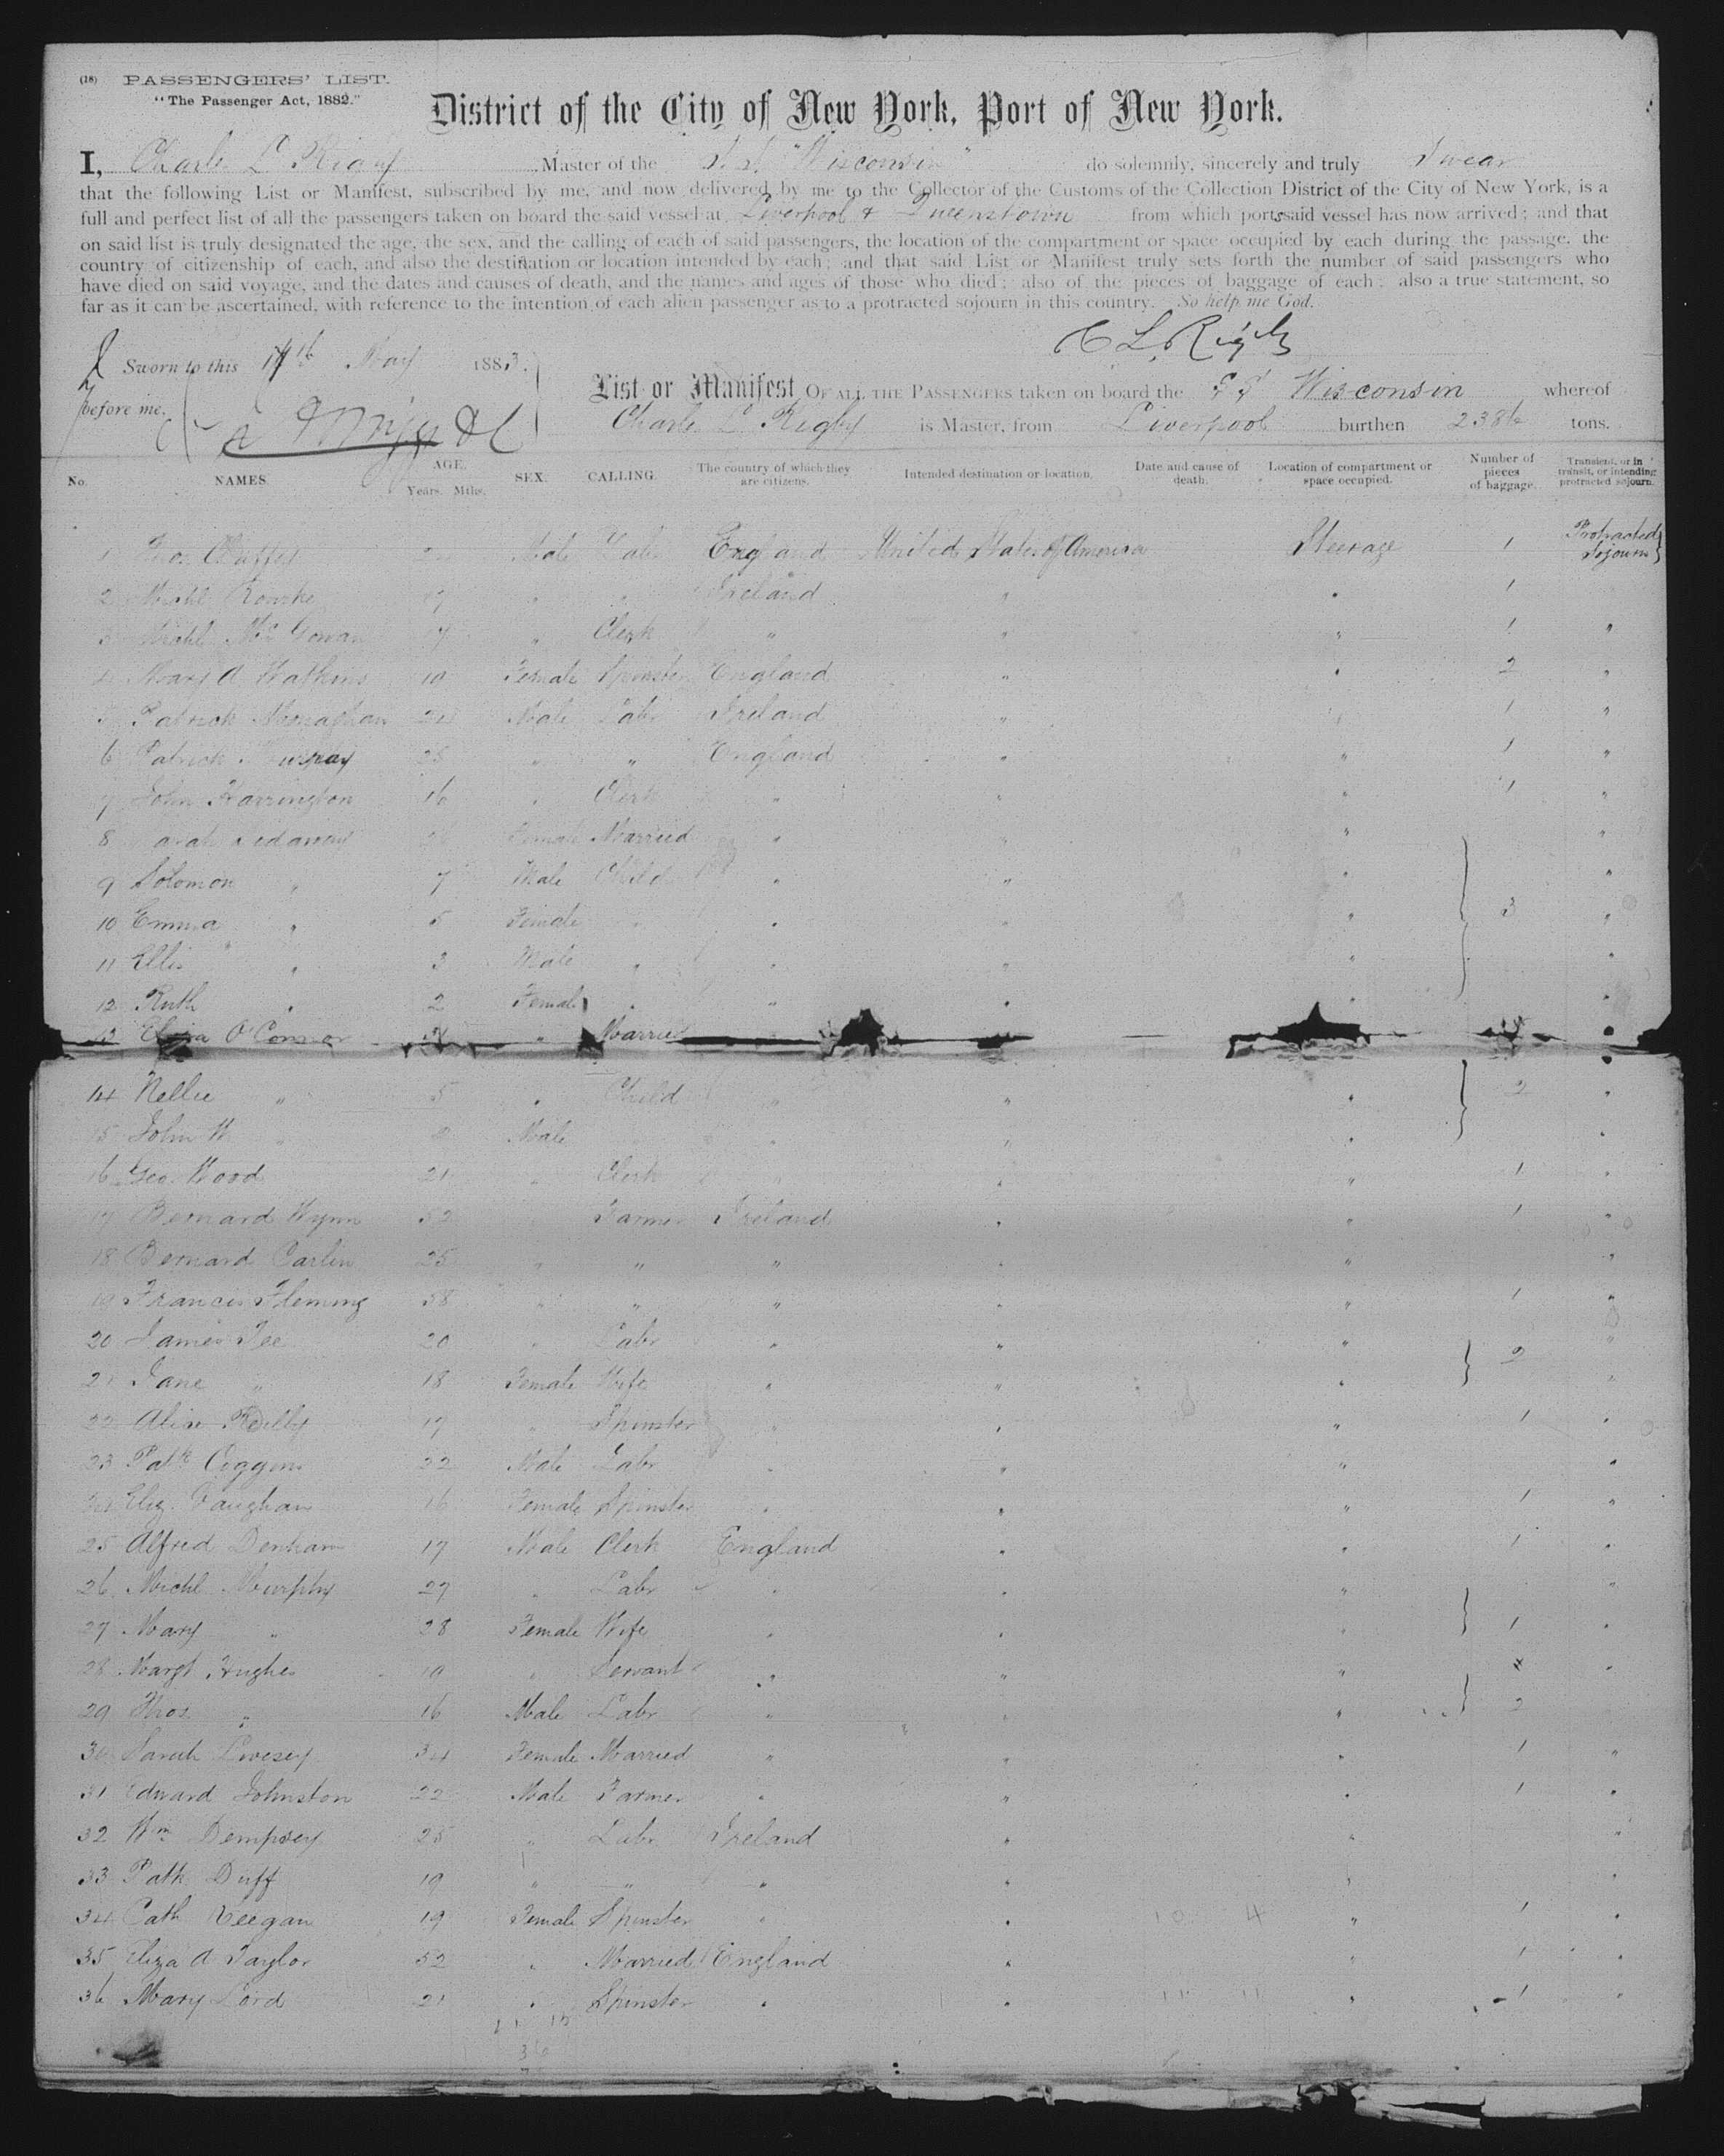 (18) PASSENGERS' LIST.
"The Passenger Act, 1882."
District of the City of New York, Port of New York.
I, Charles L Rigby Master of the S.S. "Wisconsin" do solemnly, sincerely and truly Swear
that the following List or Manifest, subscribed by me, and now delivered by me to the Collector of the Customs of the Collection District of the City of New York, is a
full and perfect list of all the passengers taken on board the said vessel at Liverpool & Queenstown from which ports said vessel has now arrived; and that
on said list is truly designated the age, the sex, and the calling of each of said passengers, the location of the compartment or space occupied by each during the passage, the
country of citizenship of each, and also the destination or location intended by each; and that said List or Manifest truly sets forth the number of said passengers who
have died on said voyage, and the dates and causes of death, and the names and ages of those who died; also of the pieces of baggage of each; also a true statement, so
far as it can be ascertained, with reference to the intention of each alien passenger as to a protracted sojourn in this country. So help me God.
C L. Rigby
Sworn to this May 1883.
before me,
List or Manifest OF ALL THE PASSENGERS taken on board the SS Wisconsin whereof
Charles L Rigby is Master, from Liverpool burthen 2386 tons.
No. NAMES. AGE. Years. Mths. SEX. CALLING. The country of which they are citizens. Intended destination or location. Date and cause of death. Location of compartment or space occupied. Number of pieces of baggage. Transient, or in transit, or intending protracted sojourn.
1 Male Labr England United States of America Steerage 1 Protracted Sojourn
2 Michl Rourke " " Ireland " " 1
3 Michl McGowan " Clerk " " " 1 "
4 Mary A Watkins 19 Female Spinster England " " 2 "
5 Patrick Monaghan 24 Male Labr Ireland " " 1 "
6 Patrick " " England " " 1 "
7 John Harrington 16 " Clerk " " " 1 "
8 Female Married " " " "
9 Solomon " 7 Male Child " " " "
10 Emma " 5 Female " " " " 3 "
11 Ellis " 3 Male " " " " "
12 Ruth " 2 Female " " " " "
13 O'Connor " Married
14 Nellie " 5 " Child " " " 2 "
15 John W " Male " " " "
16 Geo. Wood 21 " Clerk " " " 1 "
17 Bernard Wynn 52 " Farmer Ireland " " 1 "
18 Bernard Carlin 25 " " " " " "
19 Francis Fleming 58 " " " " " 1 "
20 James Tee 20 " Labr " " " "
21 Jane " 18 Female Wife " " " 2 "
22 Alice Reilly 17 " Spinster " " " 1 "
23 Patk Coggins 22 Male Labr " " " "
24 Eliz. Vaughan 16 Female Spinster " " " 1 "
25 Alfred Denham 17 Male Clerk England " " 1 "
26 Michl Murphy 27 " Labr " " " "
27 Mary " 28 Female Wife " " " 1 "
28 Margt Hughes 19 " Servant " " " "
29 Thos " 16 Male Labr " " " 2
30 Sarah Livesey 34 Female Married " " " 1 "
31 Edward Johnston 22 Male Farmer " " " 1 "
32 Wm Dempsey 25 " Labr Ireland " " "
33 Patk Duff 19 " " " " " "
34 Cath Keegan 19 Female Spinster " " " 1 "
35 Eliza A Taylor 52 " Married England " " 1 "
36 Mary Lord 21 " Spinster " " " 1 "
36